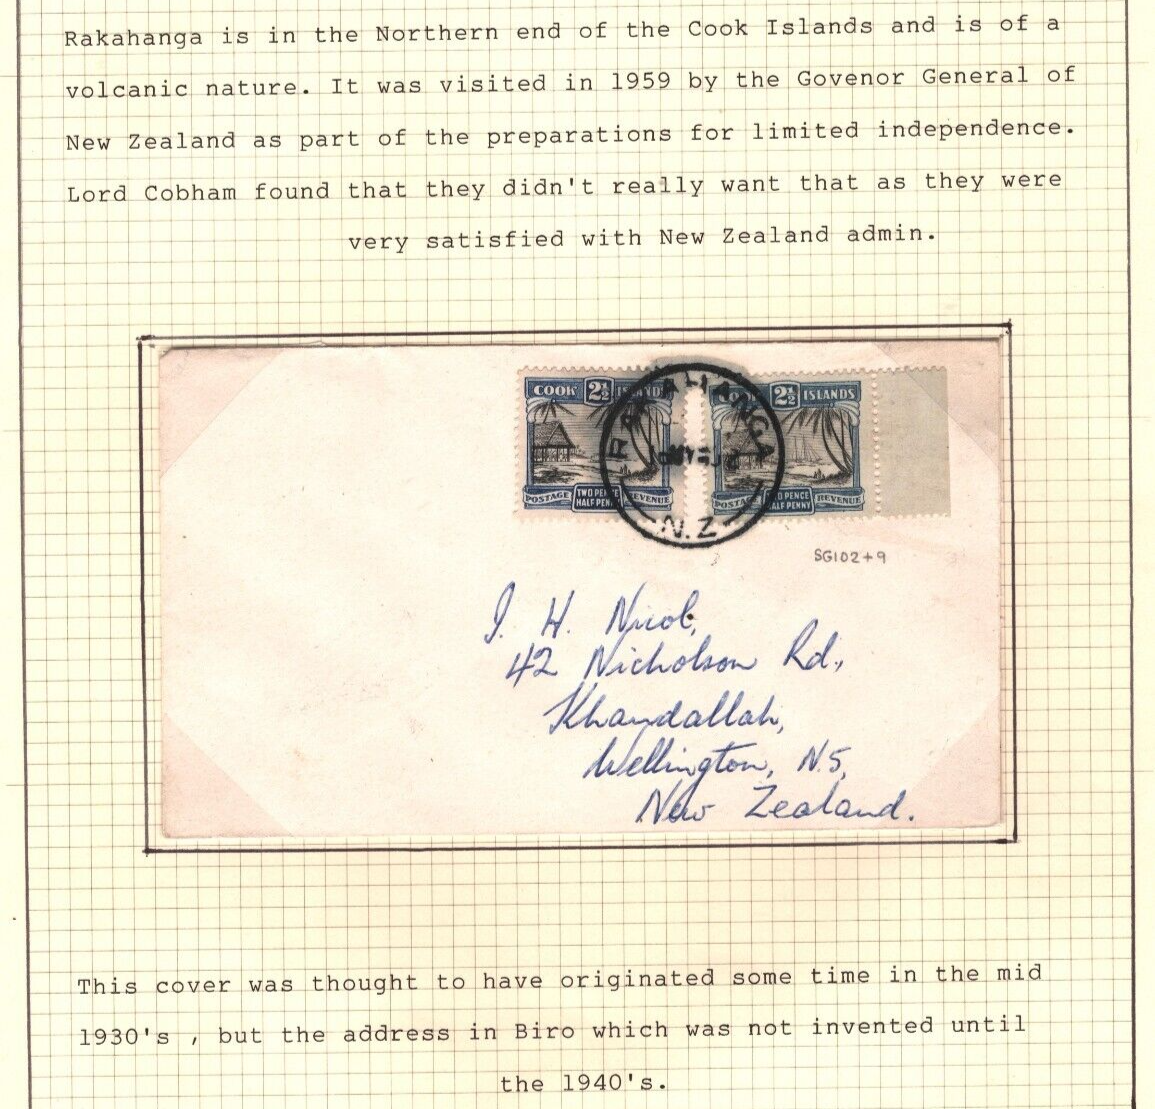 Rakahanga is in the Northern end of the Cook Islands and is of a
volcanic nature. It was visited in 1959 by the Govenor General of
New Zealand as part of the preparations for limited independence.
Lord Cobham found that they didn't really want that as they were
very satisfied with New Zealand admin.
COOK 2½ ISLANDS
2½ ISLANDS
POSTAGE TWO PENCE HALF PENNY REVENUE
POSTAGE PENCE HALF PENNY REVENUE
N.Z
SG102+9
I. H. Nicol,
42 Nicholson Rd.,
Khandallah,
Wellington, N.5,
New Zealand.
This cover was thought to have originated some time in the mid
1930's , but the address in Biro which was not invented until
the 1940's.